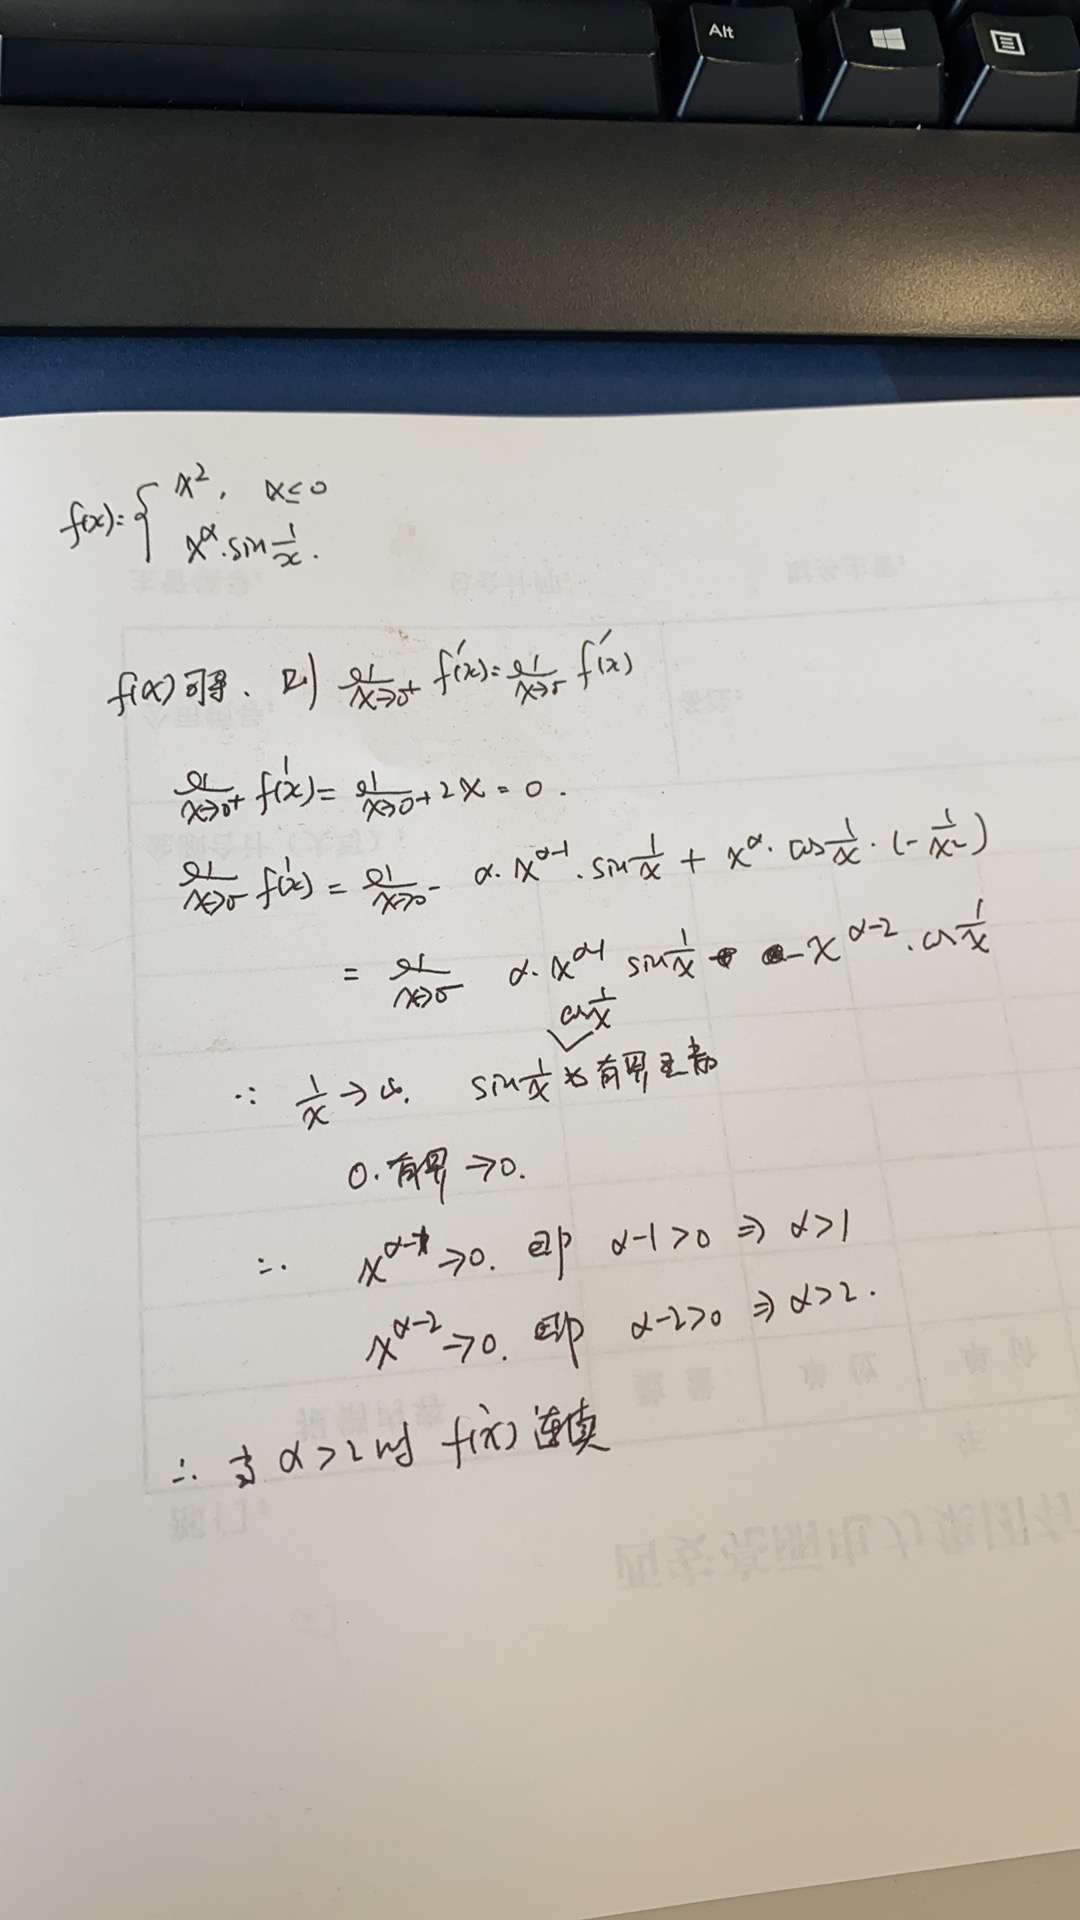 Alt
f(x)={ x², x≤0
x^α·sin 1/x.
f(x)可导、则 lim x→0⁺ f'(x)=lim x→0⁻ f'(x)
lim x→0⁺ f'(x)=lim x→0⁺ 2x=0.
lim x→0⁻ f'(x)=lim x→0⁻ α·x^(α-1)·sin 1/x + x^α·cos 1/x·(-1/x²)
=lim x→0⁻ α·x^(α-1) sin 1/x - x^(α-2)·cos 1/x
cos 1/x
∵ 1/x→∞. sin 1/x 为有界
0·有界→0.
∴ x^(α-1)→0. 即 α-1>0 ⇒ α>1
x^(α-2)→0. 即 α-2>0 ⇒ α>2.
∴ 当 α>2时 f'(x) 连续